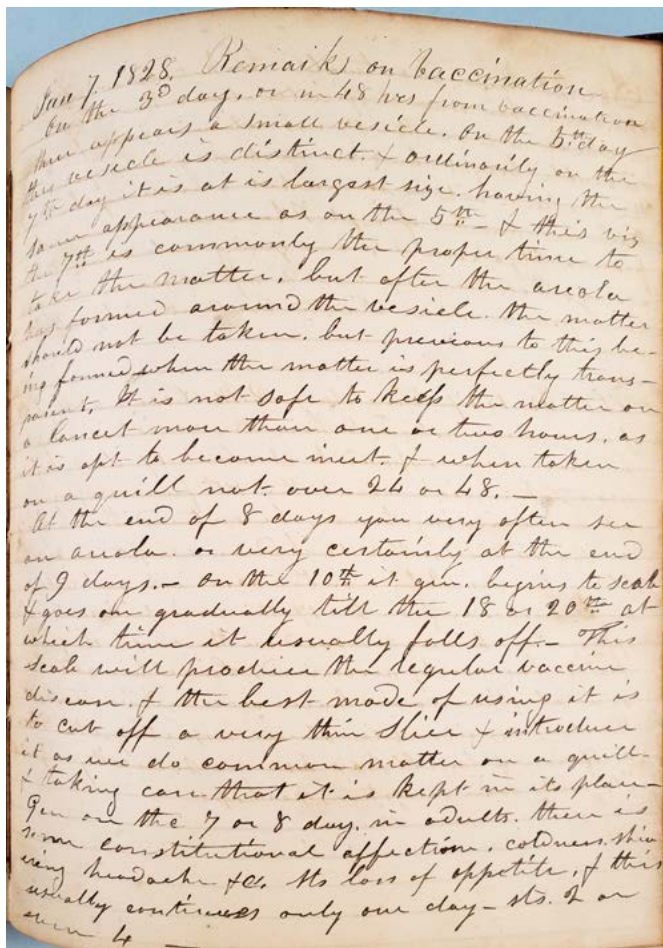 Jan 7. 1828. Remarks on Vaccination
On the 3d day, or in 48 hrs from vaccination
there appears a small vesicle. On the 5th day
this vesicle is distinct. & ordinarily on the
7th day it is at is largest size. having the
same appearance as on the 5th - & this viz
the 7th is commonly the proper time to
take the matter, but after the areola
has formed around the vesicle. the matter
should not be taken. but previous to this be-
ing formed when the matter is perfectly trans-
parent. It is not safe to keep the matter on
a lancet more than one or two hours. as
it is apt to become inert. & when taken
on a quill not over 24 or 48. —
At the end of 8 days you very often see
an areola. or very certainly at the end
of 9 days. — On the 10th it gen. begins to scab
& goes on gradually till the 18 or 20th at
which time it usually falls off — This
scab will produce the regular vaccine
disease. & the best mode of using it is
to cut off a very thin slice & introduce
it as we do common matter on a quill-
& taking care that it is kept in its place—
Gen on the 7 or 8 day. in adults. there is
some constitutional affection. coldness. shiv
ering headache &c. Sts loss of appetite, & this
usually continues only one day — sts. 2 or
even 4